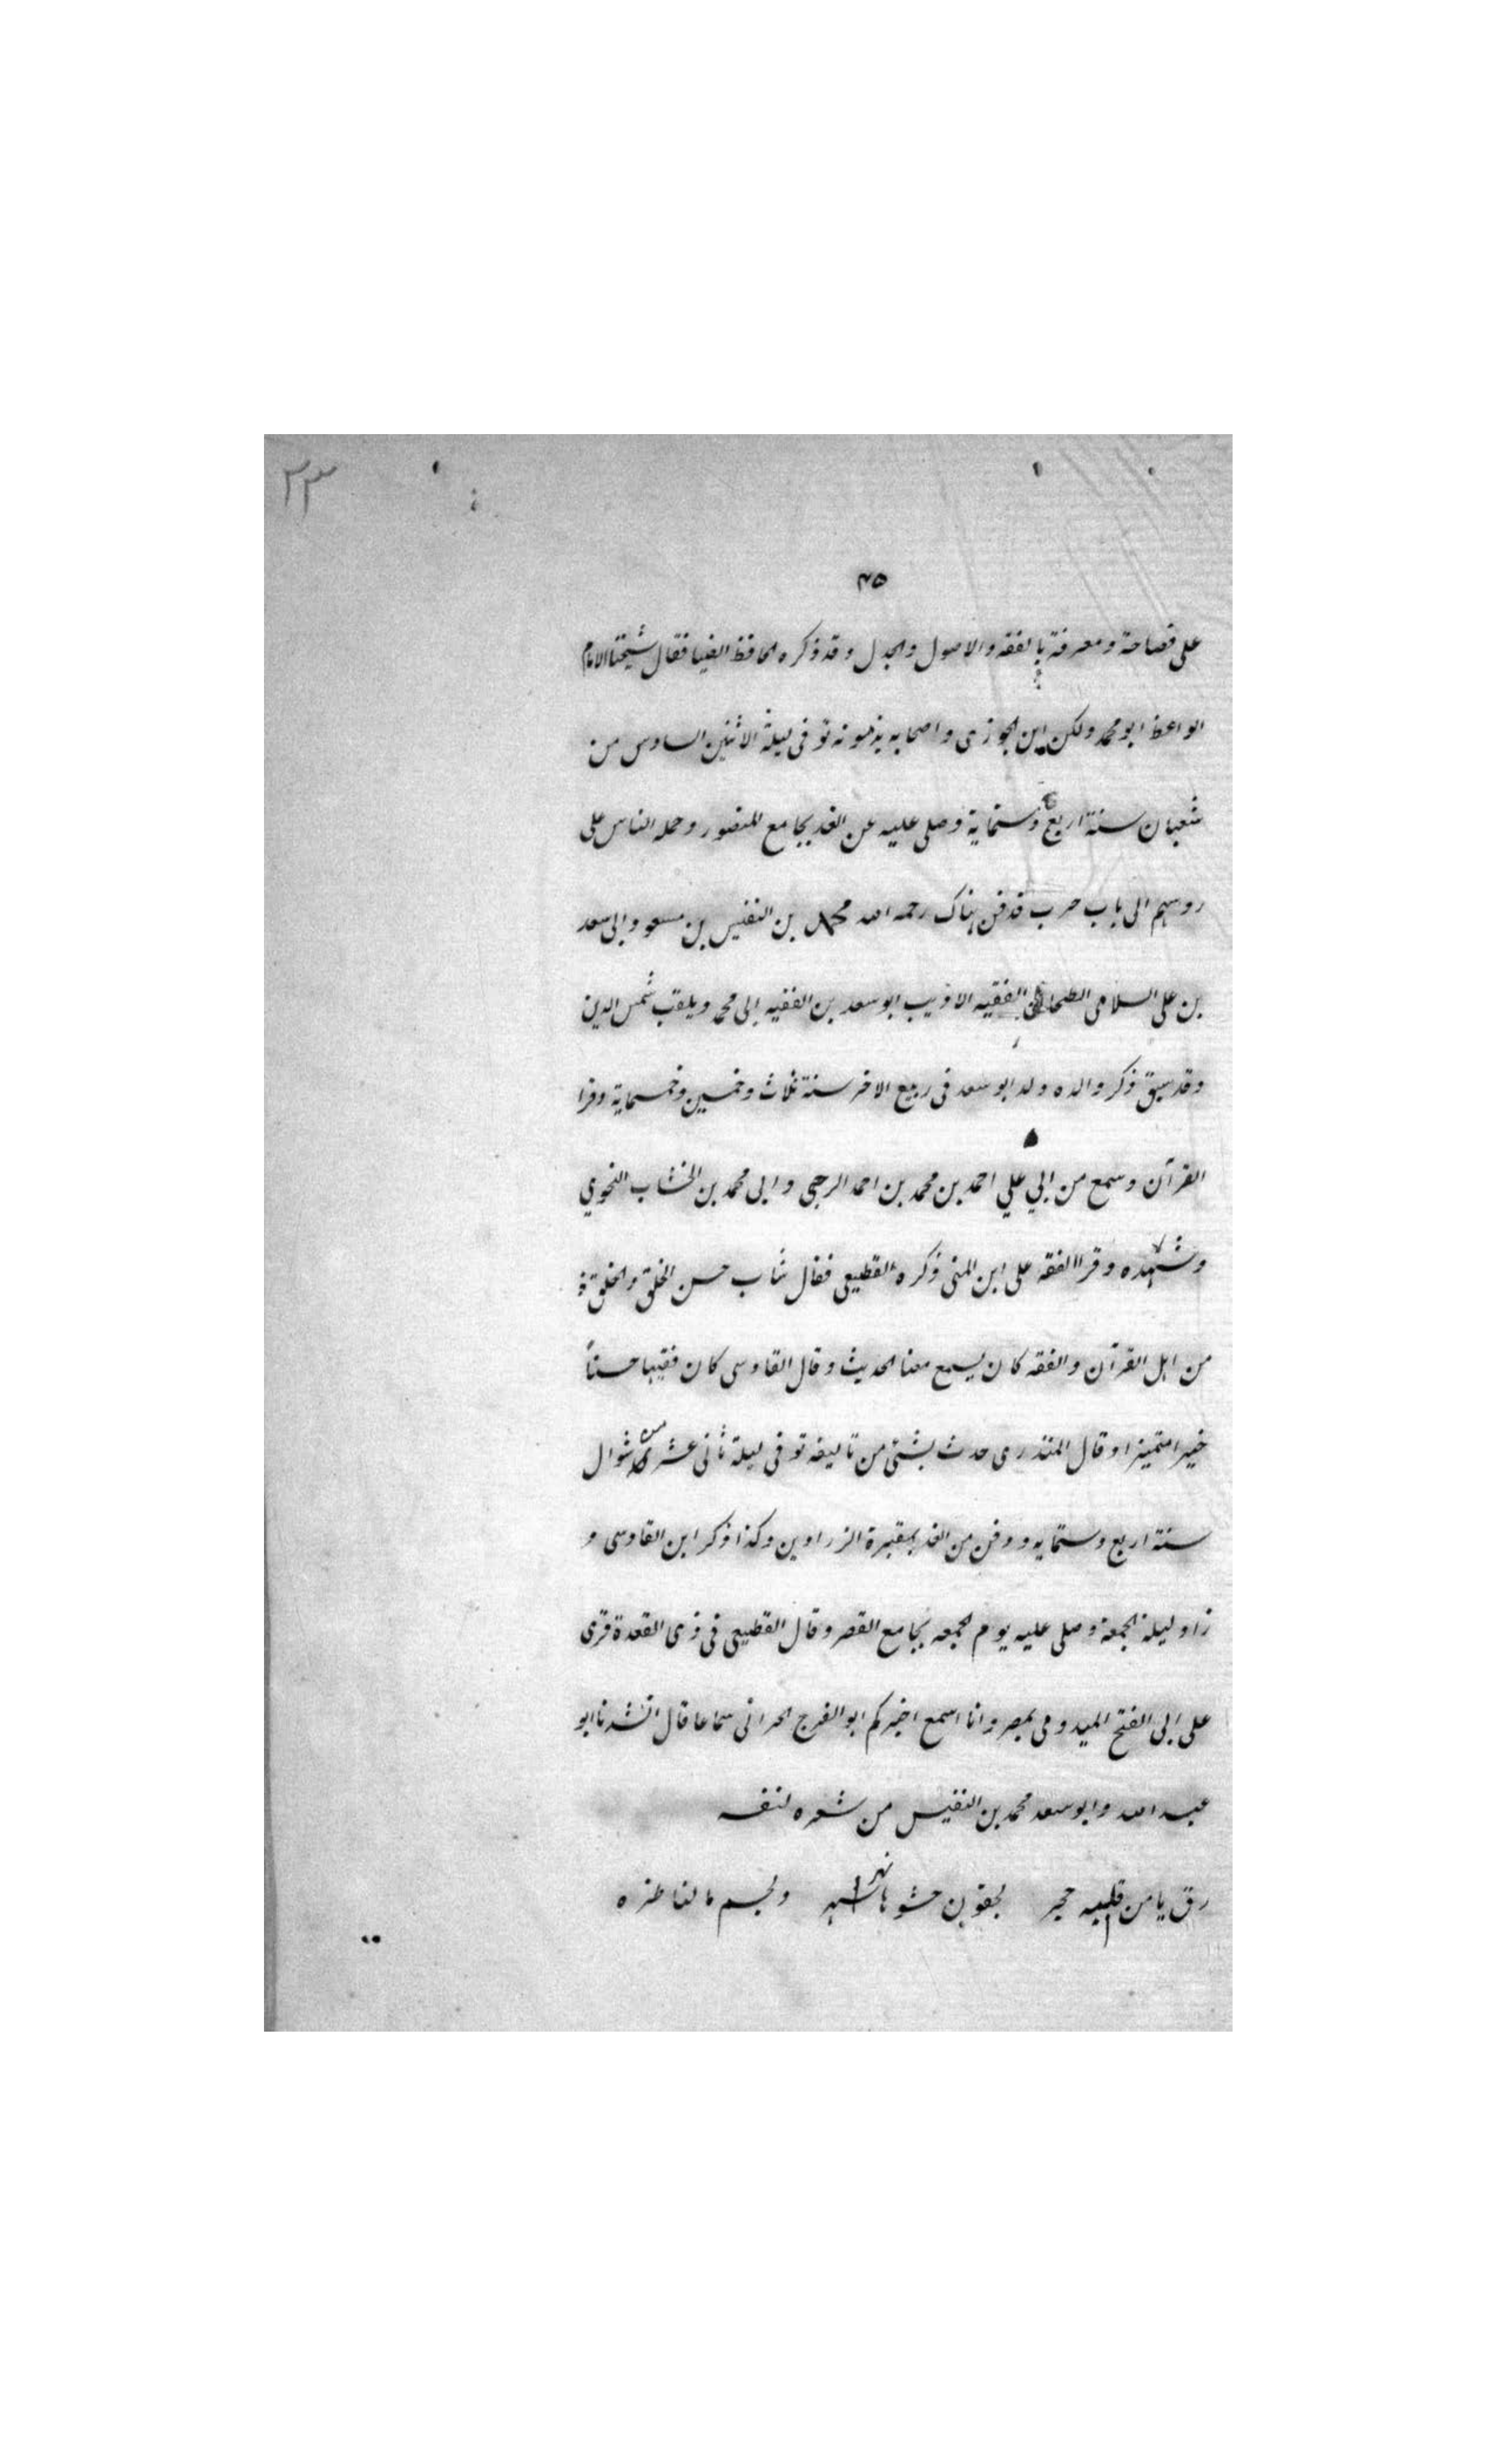 ٢٣
٣٥
على فصاحة ومعرفة بالفقه والاصول والجدل وقد ذكره الحافظ الضيا فقال شيخنا الامام
الواعظ ابو محمد ولكن ابن الجوزى واصحابه يذمونه توفى ليلة الاثنين السادس من
شعبان سنة اربع وستماية وصلى عليه من الغد بجامع المنصور وحمله الناس على
روسهم الى باب حرب فدفن هناك رحمه الله محمد بن النفيس بن مسعود ابى سعد
بن على السلامى الفقيه الاديب ابو سعد بن الفقيه ابى محمد ويلقب شمس الدين
وقد سبق ذكر والده ولد ابو سعد فى ربيع الاخر سنة ثلاث وخمسين وخمسماية وقرا
القرآن وسمع من ابي علي احمد بن محمد بن احمد الرحبى وابى محمد بن الخشاب النحوي
وشهده وقرا الفقه على ابن المنى ذكره القطيعى فقال شاب حسن الخلق والخلق
من اهل القرآن والفقه كان يسمع معنا الحديث وقال القادسى كان فقيها حسناً
خيرا متميزا وقال المنذرى حدث بشئ من تاليفه توفى ليلة ثانى عشرى شوال
سنة اربع وستمايه ودفن من الغد بمقبرة الزرادين وكذا ذكر ابن القادسى و
زاد ليلة الجمعة وصلى عليه يوم الجمعه بجامع القصر وقال القطيعى فى ذى القعدة قرى
على ابى الفتح الميدومى بمصر وانا اسمع اخبركم ابو الفرج الحرانى سماعا قال انشدنا ابو
عبد الله وابو سعد محمد بن النفيس من شعره لنفسه
رق يا من قلبه حجر لجفون حشوها سهر ولجسم ما لناظره